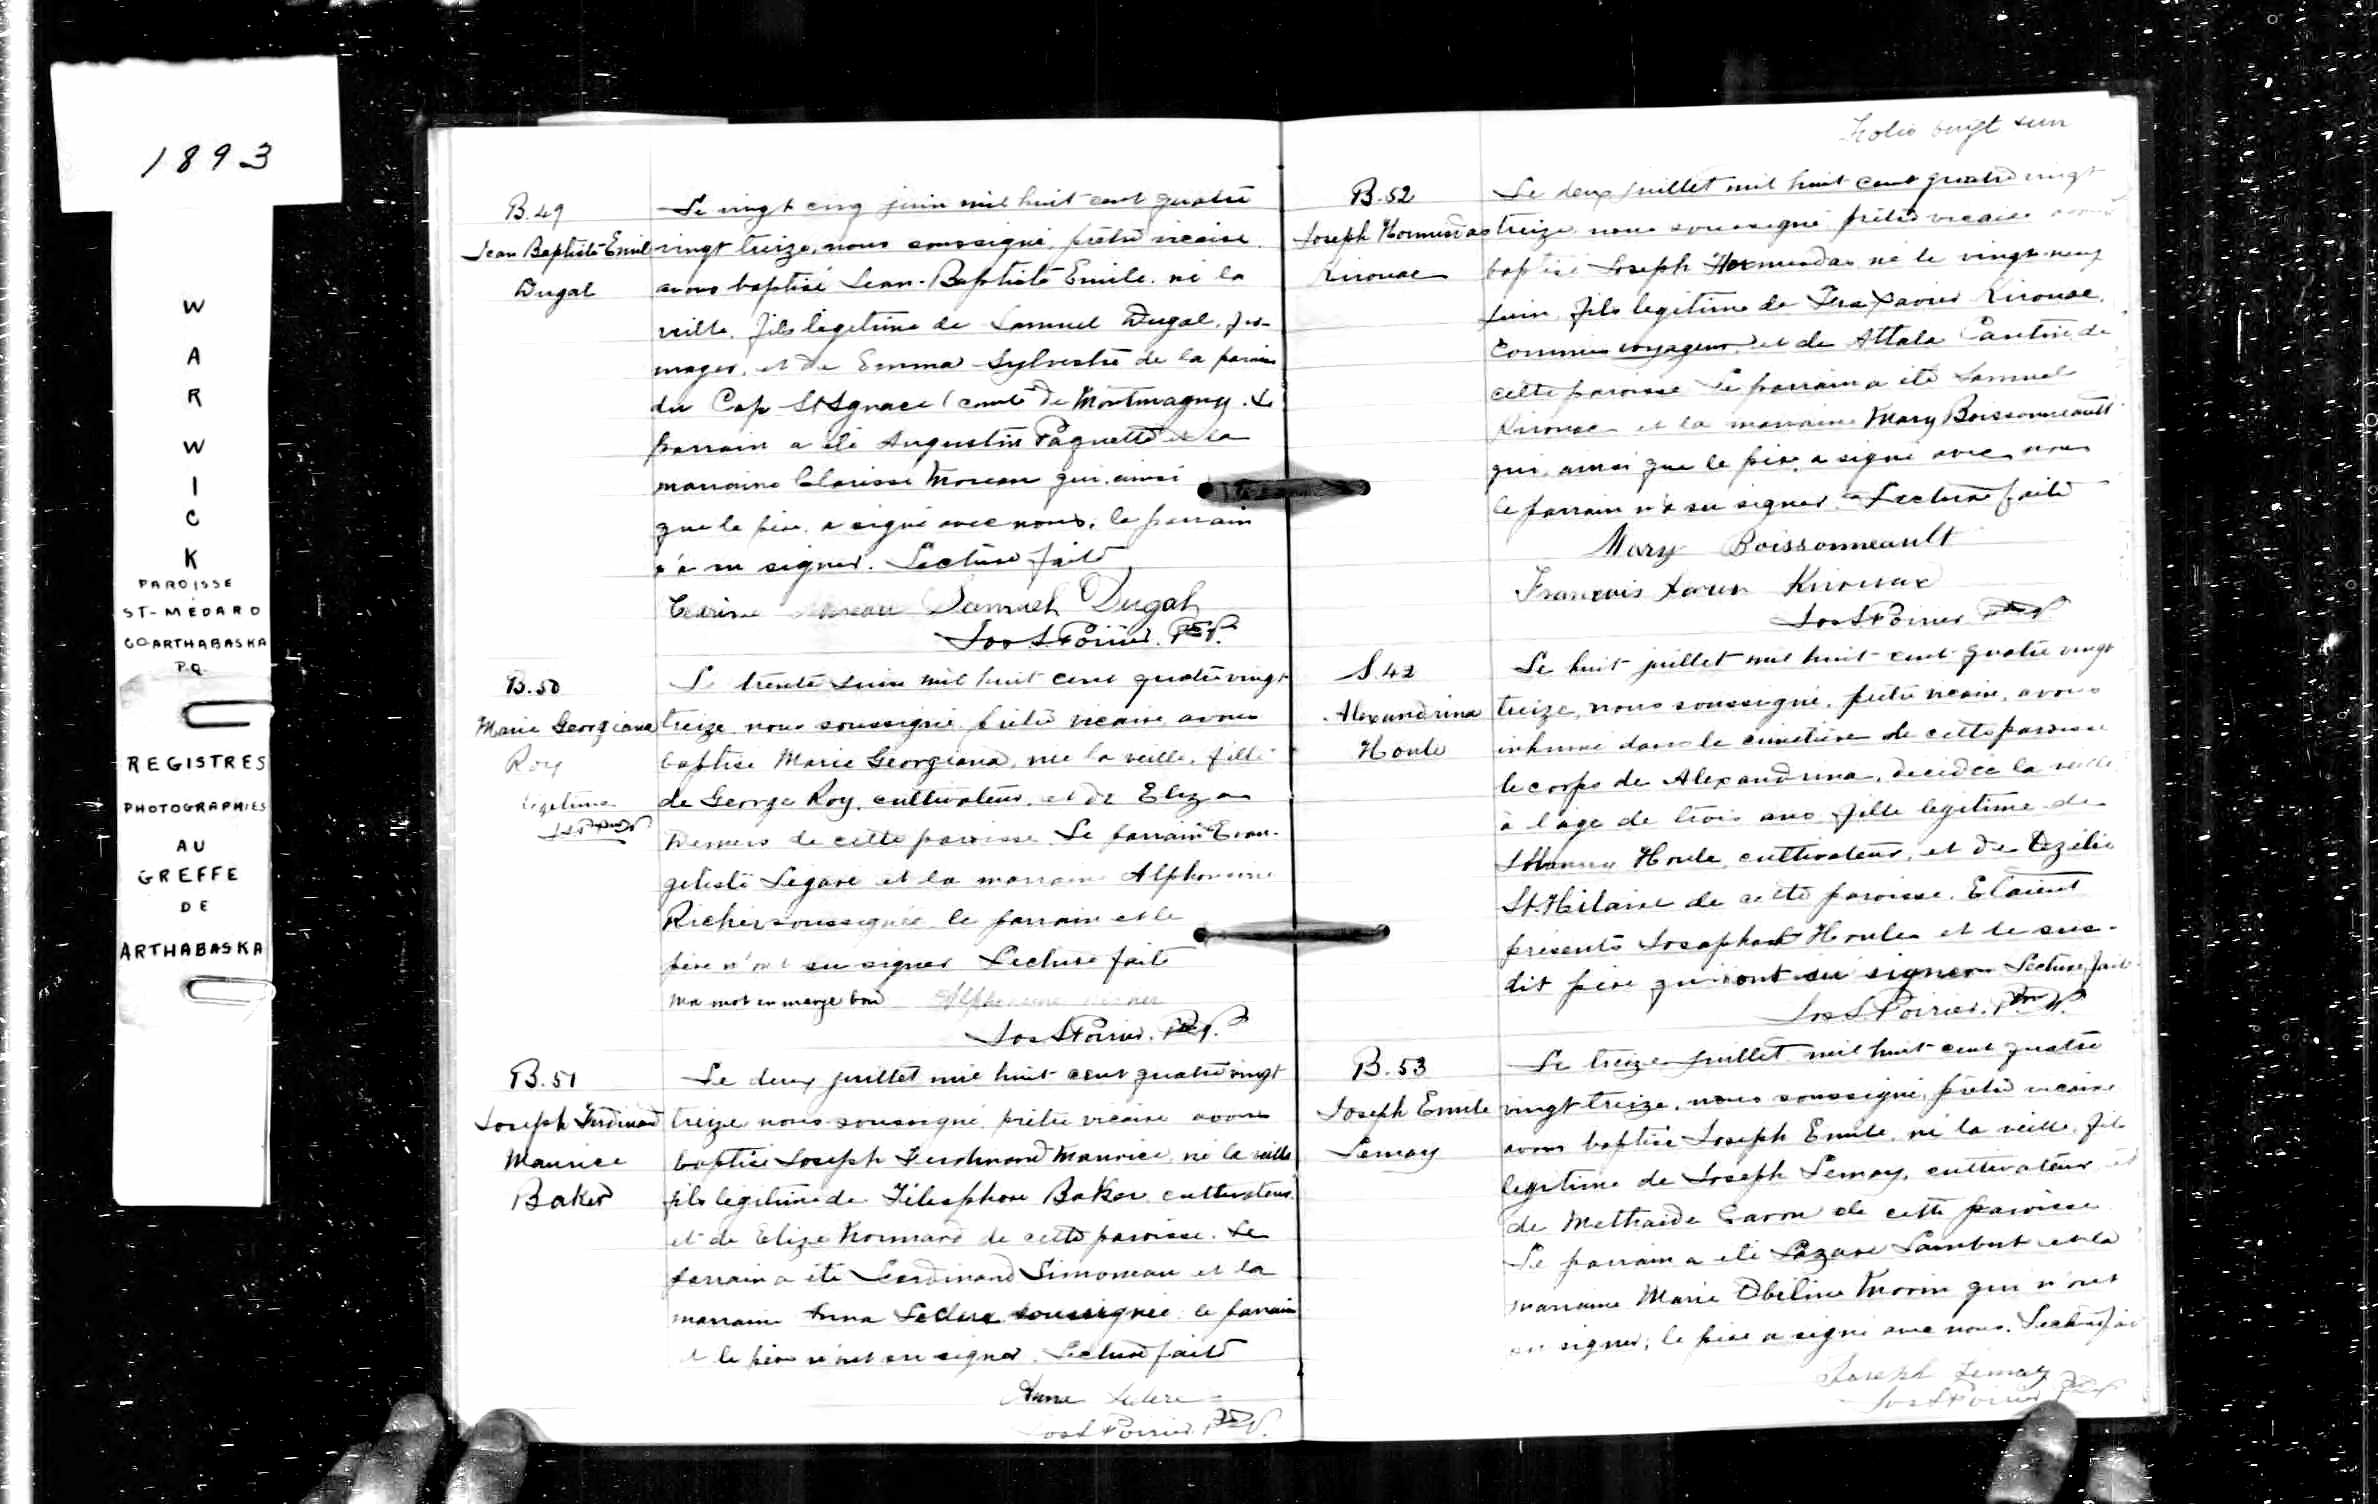 1893
WARWICK
PAROISSE
ST-MÉDARD
CO ARTHABASKA
P.Q.
REGISTRES
PHOTOGRAPHIES
AU
GREFFE
DE
ARTHABASKA
B.49
Jean Baptiste Emile
Dugal
Le vingt cinq juin mil huit cent quatre
vingt treize, nous soussigné, prêtre vicaire
avons baptisé Jean-Baptiste Emile né la
veille, fils légitime de Samuel Dugal, fro-
mager, et de Emma Sylvestre de la paroisse
du Cap St Ignace (comté de Montmagny. Le
parrain a été Augustin Paquette et la
marraine Clarisse Moreau qui, ainsi
que le père, a signé avec nous, le parrain
n'a su signer. Lecture faite
Moreau Samuel Dugal
Jos S Poirier. Ptre V.
B.50
Marie Georgiana
Roy
légitime
Le trente Juin mil huit cent quatre vingt
treize nous soussigné prêtre vicaire avons
baptisé Marie Georgiana, née la veille, fille
de George Roy, cultivateur, et de Eliza
Demers de cette paroisse. Le parrain Evan-
geliste Legaré et la marraine Alphonsine
Richer soussignée le parrain et le
père n'ont su signer Lecture faite
Un mot en marge bon Alphonsine Richer
Jos S Poirier. Ptre V.
B.51
Joseph Ferdinand
Maurice
Baker
Le deux juillet mil huit cent quatre vingt
treize nous soussigné prêtre vicaire avons
baptisé Joseph Ferdinand Maurice, né la veille
fils légitime de Télesphore Baker cultivateur
et de Elize Normand de cette paroisse. Le
parrain a été Ferdinand Simoneau et la
marraine Anna Leclerc soussignée le parrain
et le père n'ont su signer. Lecture faite
Anna Leclerc
Jos S Poirier Ptre V.
Folio vingt
B.52
Joseph Hormisdas
Kirouac
Le deux juillet mil huit cent quatre vingt
treize nous soussigné prêtre vicaire avons
baptisé Joseph Hormisdas né le vingt-neuf
Juin, fils légitime de Frs Xavier Kirouac,
commis voyageur, et de Attala Cantin de
cette paroisse Le parrain a été Samuel
Kirouac et la marraine Mary Boissonneault
qui, ainsi que le père, a signé avec nous
le parrain n'a su signer. Lecture faite
Mary Boissonneault
François Xavier Kirouac
Jos S Poirier Ptre V.
S.42
Alexandrina
Houle
Le huit juillet mil huit cent quatre vingt
treize, nous soussigné, prêtre vicaire, avons
inhumé dans le cimetière de cette paroisse
le corps de Alexandrina, décédée la veille
à l'age de trois ans fille légitime de
Houle cultivateur, et de Ozélie
St-Hilaire de cette paroisse. Etaient
présents Josaphat Houle et le sus-
dit père qui n'ont su signer Lecture faite
Jos S. Poirier. Ptre V.
B.53
Joseph Emile
Lemay
Le treize juillet mil huit cent quatre
vingt treize, nous soussigné, prêtre vicaire
avons baptisé Joseph Emile né la veille, fils
légitime de Joseph Lemay, cultivateur et
de Garon de cette paroisse
Le parrain a été Lazare Lambert et la
marraine Marie Obéline Morin qui n'ont
su signer, le père a signé avec nous. Lecture faite
Joseph Lemay
Jos S Poirier Ptre V